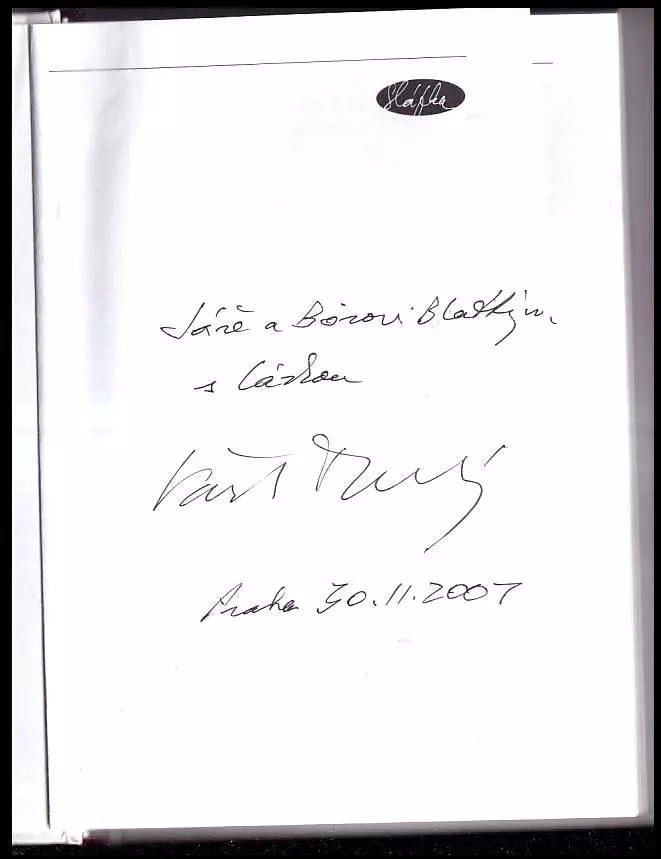 Slávka
Sáře a Bórovi Blatkým
s láskou
Praha 30.11.2007